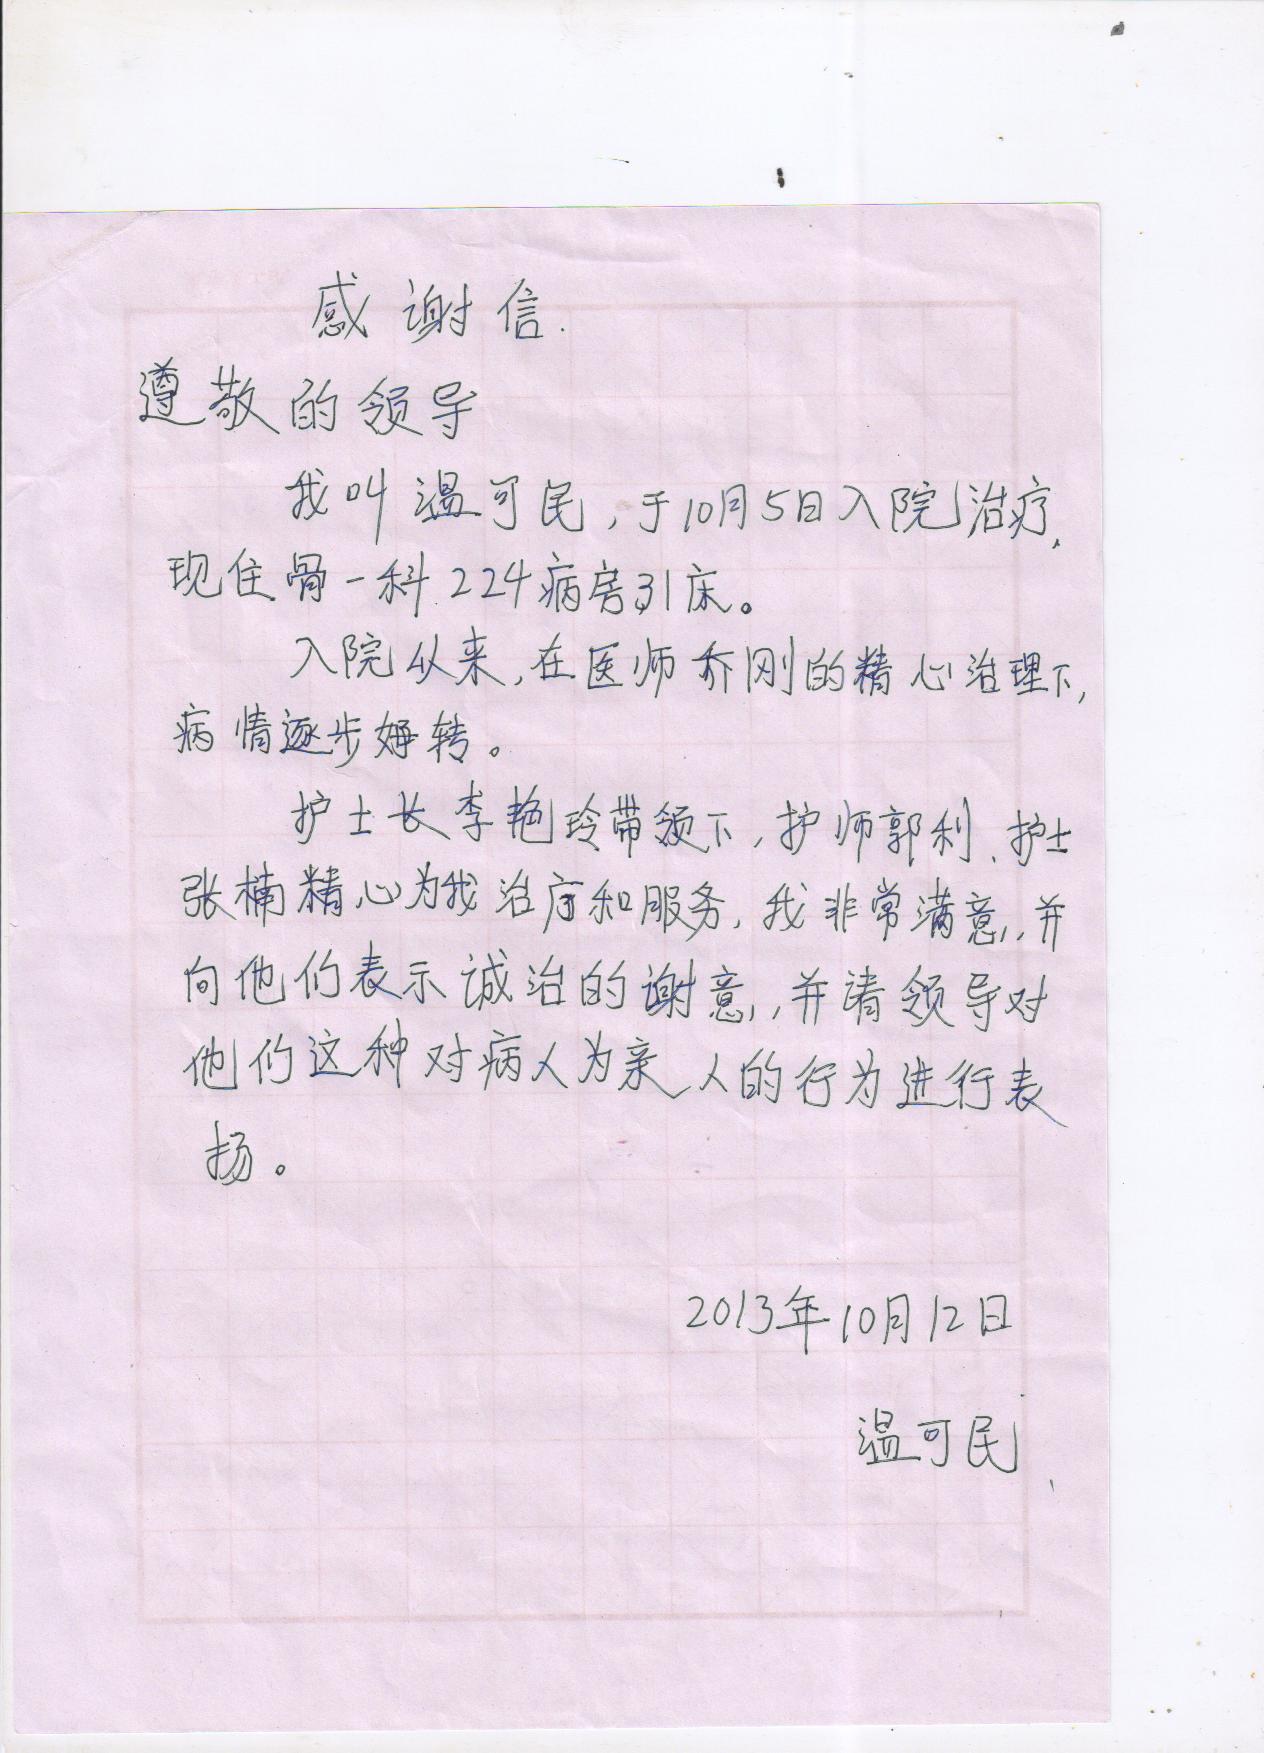 感谢信.
遵敬的领导
我叫温可民，于10月5日入院治疗，
现住骨一科224病房31床。
入院从来，在医师乔刚的精心治理下，
病情逐步好转。
护士长李艳玲带领下，护师郭利、护士
张楠精心为我治疗和服务，我非常满意，并
向他们表示诚治的谢意，并请领导对
他们这种对病人为亲人的行为进行表
扬。
2013年10月12日
温可民